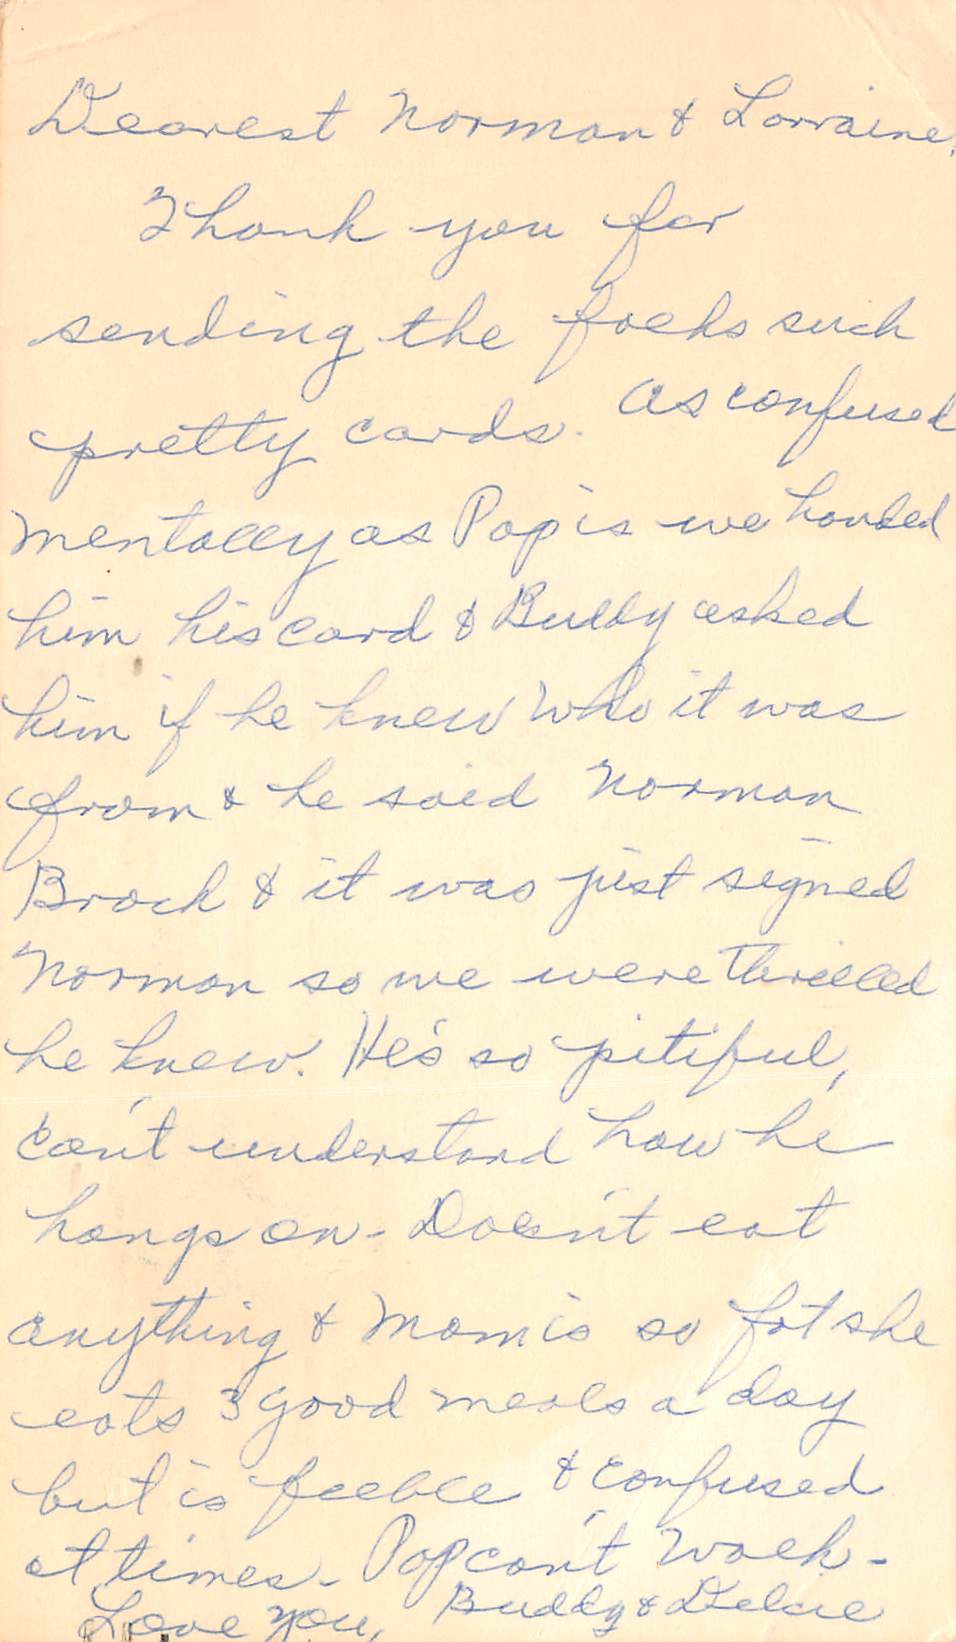 Dearest Norman & Lorraine,
Thank you for
sending the folks such
pretty cards. As confused
mentally as Pop is we handed
him his card & Buddy asked
him if he knew who it was
from & he said Norman
Brock & it was just signed
Norman so we were thrilled
he knew. He's so pitiful,
can't understand how he
hangs on - Doesn't eat
anything & Mom is so fat she
eats 3 good meals a day
but is feeble & confused
at times - Pop can't walk -
Love you, Buddy &